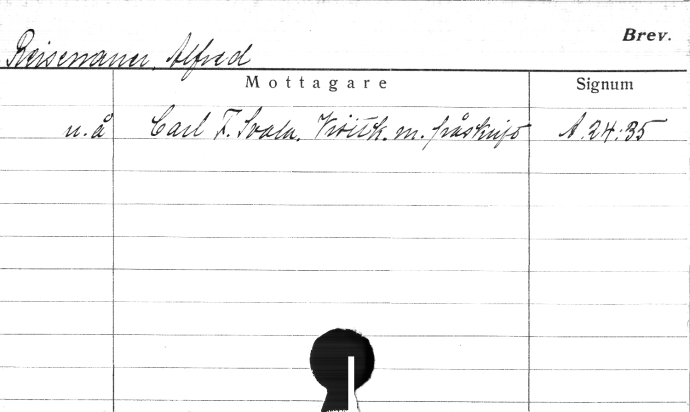 Brev.
Reisenauer, Alfred
Mottagare Signum
u. å Carl F. Svala. Visitk. m. påskrift A. 24:35